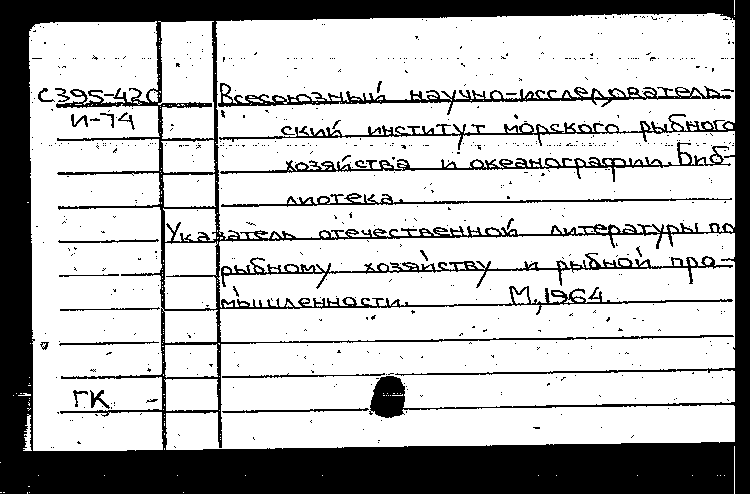 С395-420 Всесоюзный научно-исследователь-
И-74 ский институт морского рыбного
хозяйства и океанографии. Биб-
лиотека.
Указатель отечественной литературы по
рыбному хозяйству и рыбной про-
мышленности. М., 1964.
ГК